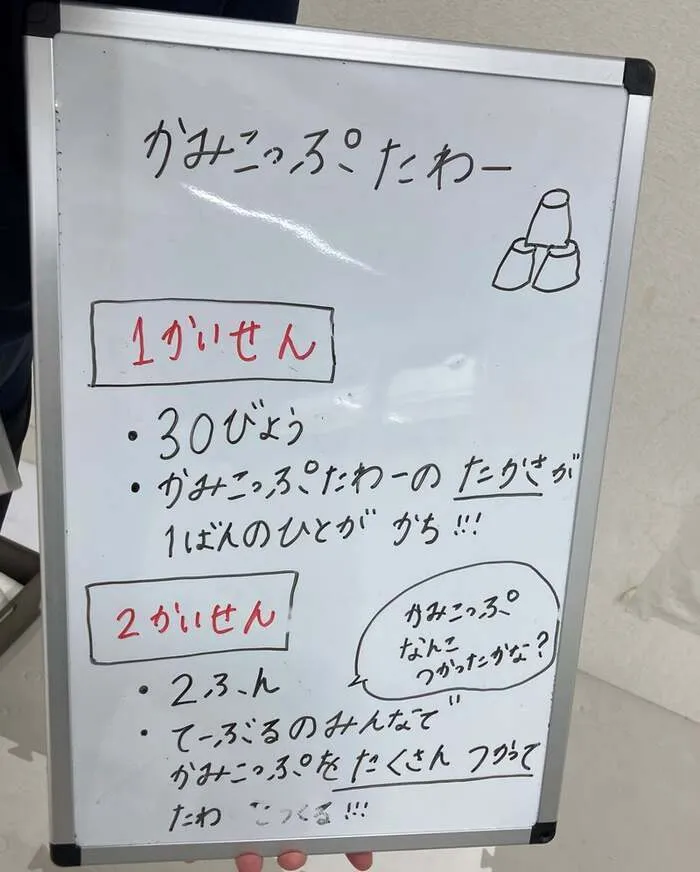 かみこっぷたわー
1かいせん
・30びょう
・かみこっぷたわーの たかさが
1ばんのひとが かち!!!
2かいせん
かみこっぷ
なんこ
つかったかな?
・2ふん
・てーぶるのみんなで
かみこっぷを たくさん つかって
たわ つくる!!!